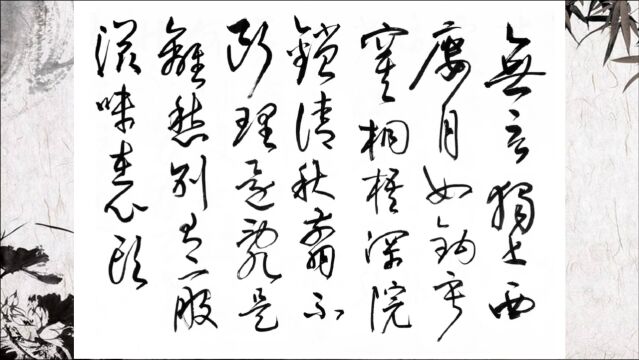 無言獨上西
樓月如鉤寂
寞桐梧深院
鎖清秋剪不
斷理還亂是
離愁別是一般
滋味在心頭